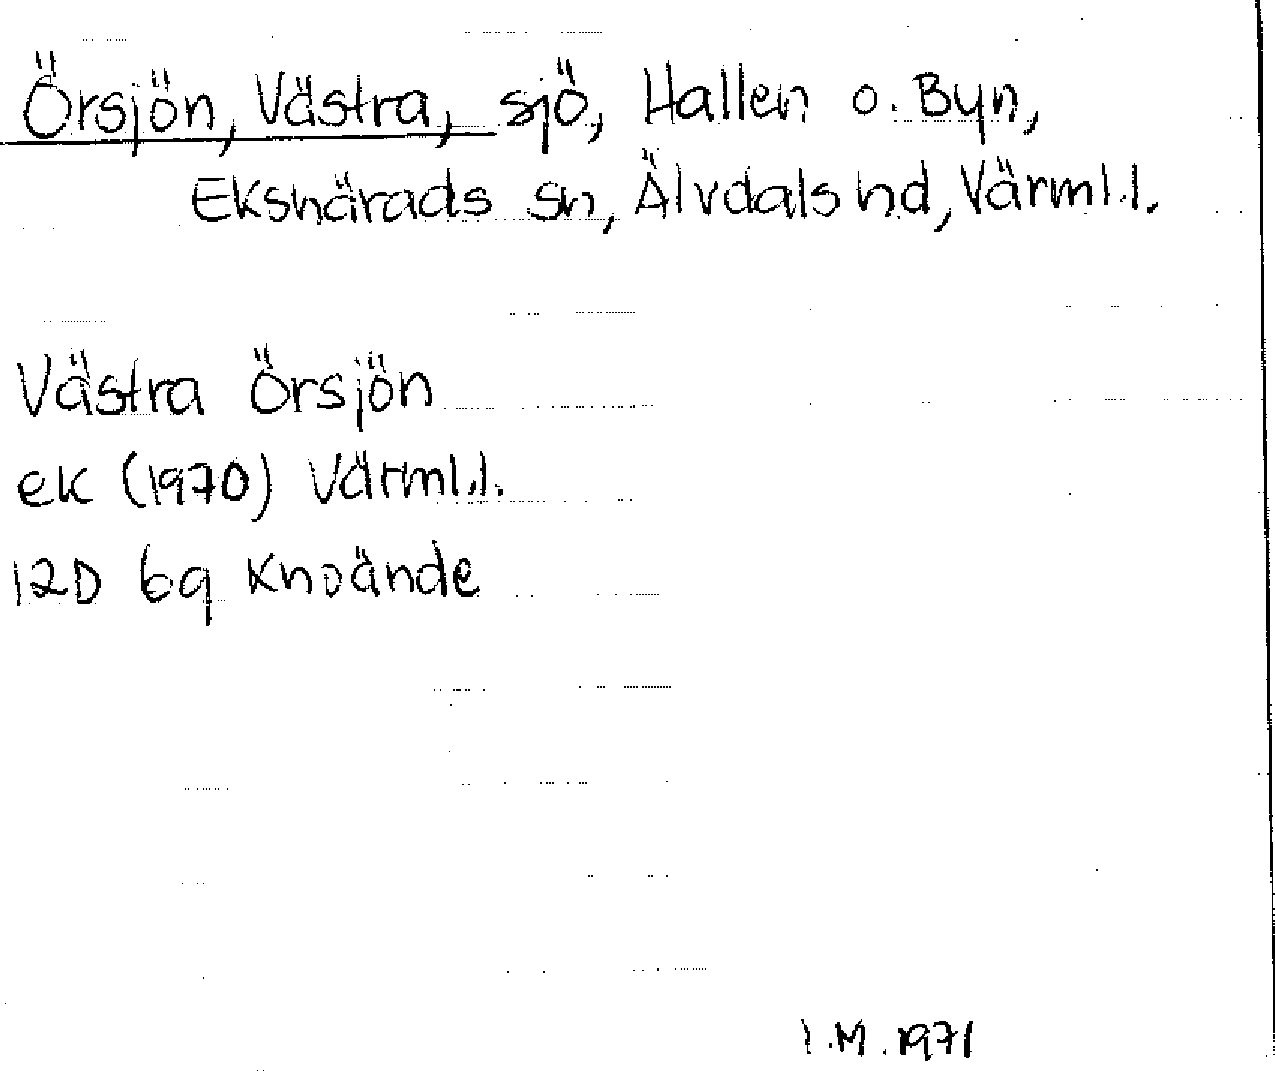 Örsjön, Västra, sjö, Hallen o. Byn,
Ekshärads sn, Älvdals hd, Värml.l.
Västra Örsjön
ek (1970) Värml.l.
12D 6q Knoände
I.M. 1971